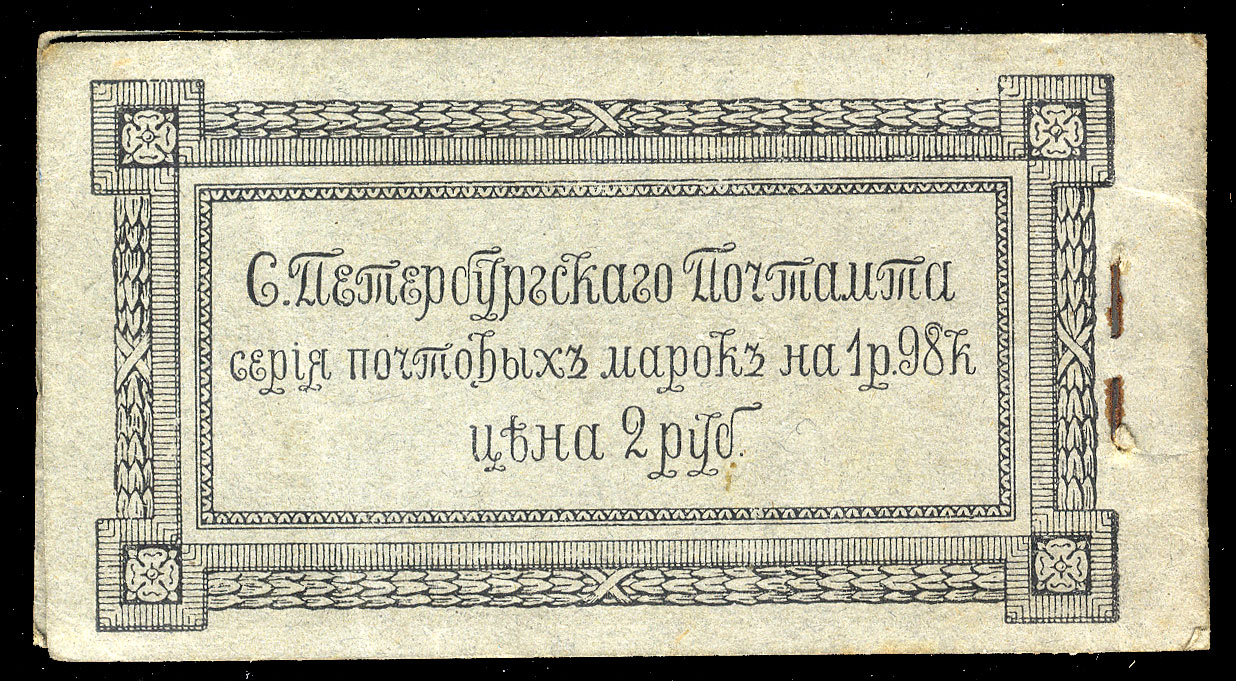 С. Петербургскаго Почтамта
серія почтовыхъ марокъ на 1 р. 98 к
цѣна 2 руб.